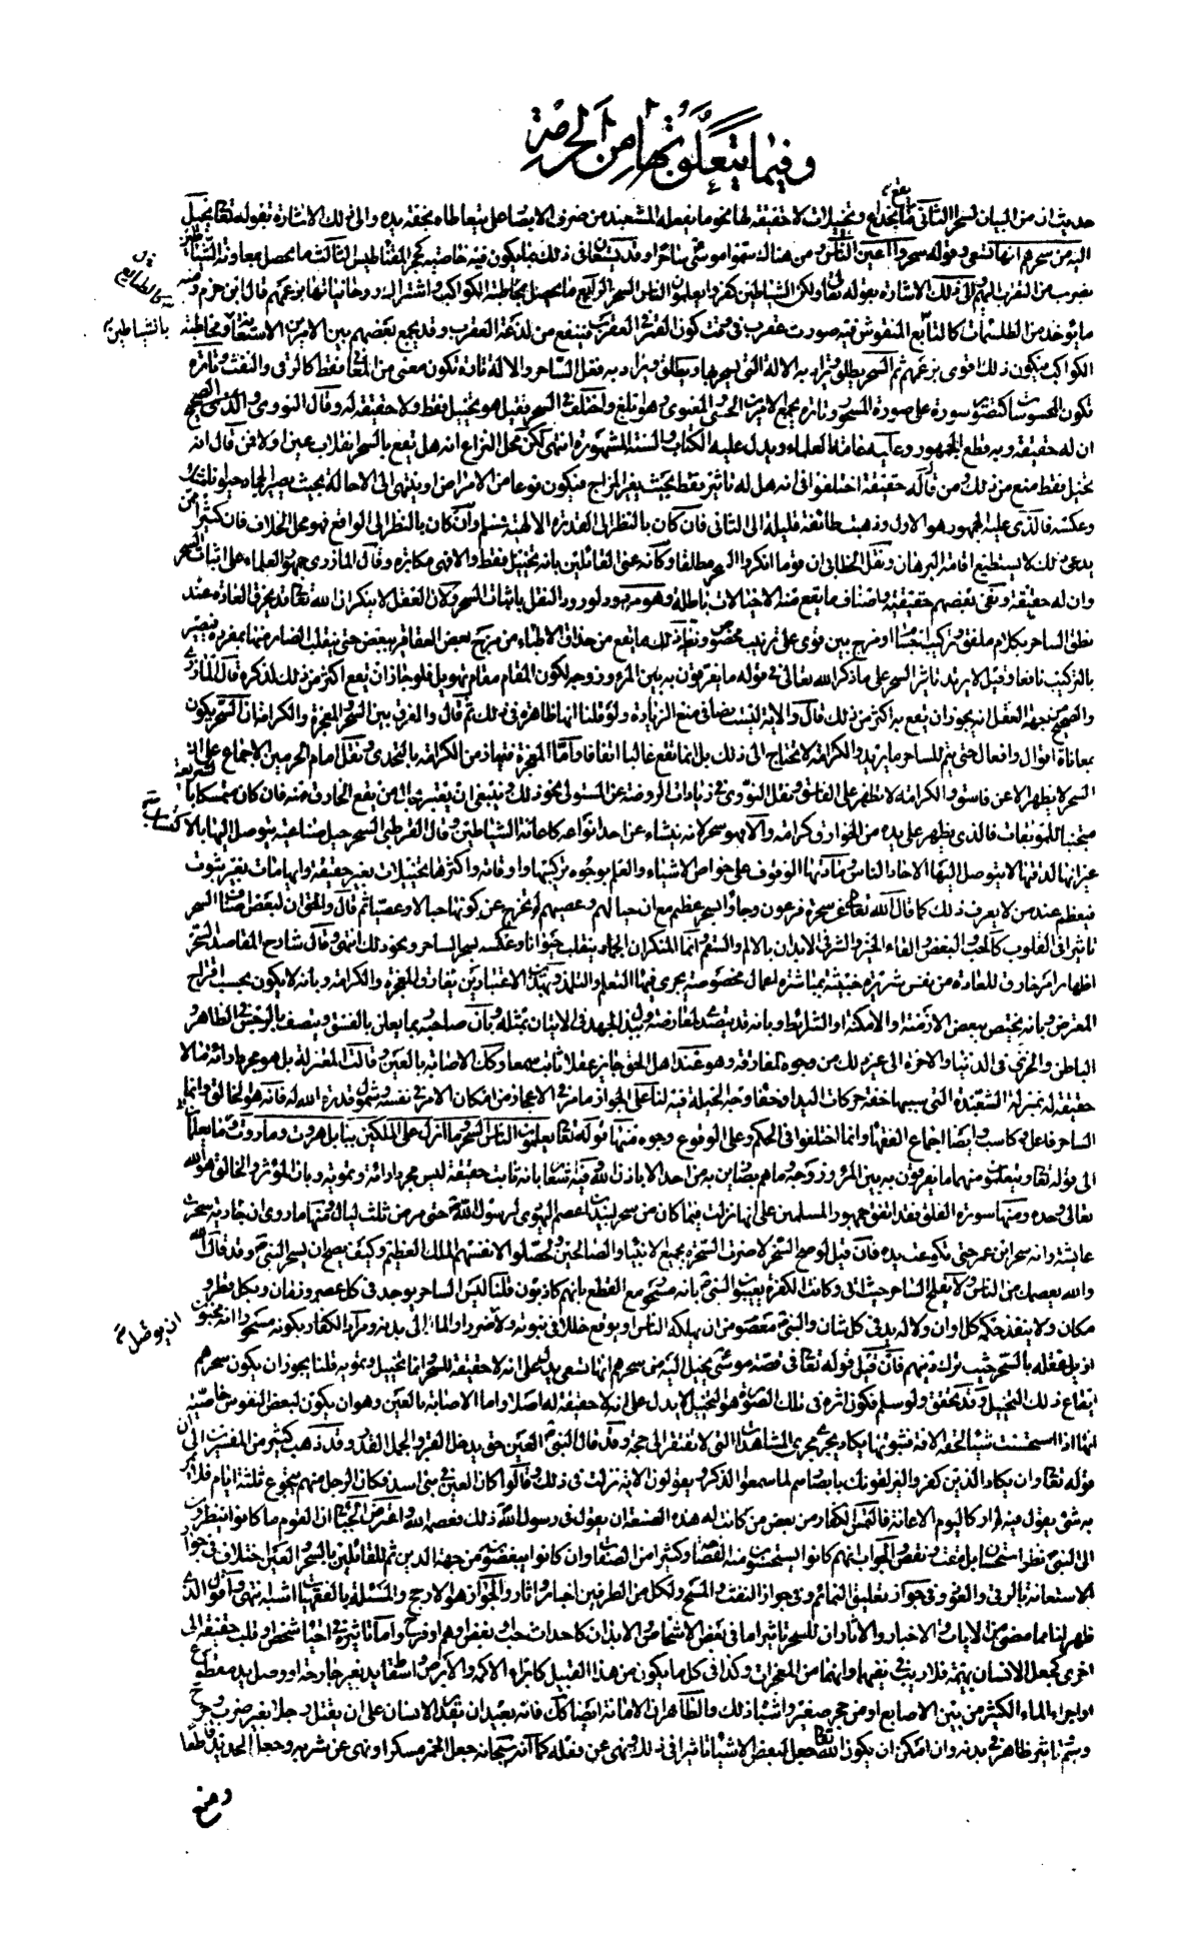 وفيما يتعلق بها من الحرمة
حديث ان من البيان لسحرا الثاني ما يقع بخداع وتخييلات لا حقيقة لها نحو ما يفعله المشعبد من صرف الابصار عما يتعاطاه بخفة يده والى ذلك الاشارة بقوله تعالى يخيل
اليه من سحرهم انها تسعى وقوله سحروا اعين الناس ومن هناك سموا موسى ساحرا وقد يستعان في ذلك بما يكون فيه خاصية كحجر المغناطيس الثالث ما يحصل بمعاونة الشياطين
بضرب من التقرب اليهم والى ذلك الاشارة بقوله تعالى ولكن الشياطين كفروا يعلمون الناس السحر الرابع ما يحصل بمخاطبة الكواكب واستنزال روحانياتها بزعمهم قال ابن حزم ومنه
ما يوخذ من الطلسمات كالطابع المنقوش فيه صورت عقرب في وقت كون القمر في العقرب فينفع من لدغة العقرب وقد يجمع بعضهم بين الامرين الاستعانة بالشياطين ومخاطبة
الكواكب فيكون ذلك اقوى بزعمهم ثم السحر يطلق ويراد به الالة التي يسحر بها ويطلق ويراد به فعل الساحر والالة تارة تكون معنى من المعاني فقط كالرقى والنفث وتارة
تكون المحسوسات كتصوير صورة على صورة المسحور وتارة بجمع الامرين الحسي والمعنوي وهو ابلغ واختلف في السحر فقيل هو تخييل فقط ولا حقيقة له وقال النووي والصحيح
ان له حقيقة وبه قطع الجمهور وعليه عامة العلماء ويدل عليه الكتاب والسنة المشهورة انتهى لكن محل النزاع انه هل يقع بالسحر انقلاب عين او لا فمن قال انه
تخييل فقط منع من ذلك ومن قال له حقيقة اختلفوا في انه هل له تاثير فقط بحيث يغير المزاج فيكون نوعا من الامراض او ينتهي الى الاحالة بحيث يصير الجماد حيوانا مثلا
وعكسه فالذي عليه الجمهور هو الاول وذهبت طائفة قليلة الى الثاني فان كان بالنظر الى القدرة الالهية فمسلم وان كان بالنظر الى الواقع فهو محل الخلاف فان كثيرا ممن
يدعي ذلك لا يستطيع اقامة البرهان ونقل الخطابي ان قوما انكروا السحر مطلقا وكانه عنى القائلين بانه تخييل فقط والا فهي مكابرة وقال المازري جمهور العلماء على اثبات السحر
وان له حقيقة ونفى بعضهم حقيقته واضاف ما يقع منه الى خيالات باطلة وهو مردود لورود النقل باثبات السحر ولان العقل لا ينكر ان الله تعالى قد يخرق العادة عند
نطق الساحر بكلام ملفق وتركيب اجسام او مزج بين قوى على ترتيب مخصوص ونظير ذلك ما يقع من حذاق الاطباء من مزج بعض العقاقير ببعض حتى ينقلب الضار منها بمفرده فيصير
بالتركيب نافعا وقيل لا يزيد تاثير السحر على ما ذكر الله تعالى في قوله ما يفرقون به بين المرء وزوجه لكون المقام مقام تهويل فلو جاز ان يقع اكثر من ذلك لذكره قال المازري
والصحيح من جهة العقل انه يجوز ان يقع به اكثر من ذلك قال والاية ليست نصا في منع الزيادة ولو قلنا انها ظاهرة في ذلك ثم قال والفرق بين السحر والمعجزة والكرامة ان السحر يكون
بمعاناة اقوال وافعال حتى يتم للساحر ما يريد والكرامة لا تحتاج الى ذلك بل انما تقع غالبا اتفاقا واما المعجزة فتمتاز من الكرامة بالتحدي ونقل امام الحرمين الاجماع على ان
السحر لا يظهر الا عن فاسق والكرامة لا تظهر على الفاسق ونقل النووي في زيادات الروضة عن المتولي نحو ذلك وينبغي ان يعتبر بحال من يقع الخارق منه فان كان متمسكا بالشريعة
متجنبا للموبقات فالذي يظهر على يده من الخوارق كرامة والا فهو سحر لانه ينشاء عن احد انواعه كاعانة الشياطين وقال القرطبي السحر حيل صناعية يتوصل اليها بالاكتساب
غير انها لدقتها لا يتوصل اليها الا احاد الناس ومادتها الوقوف على خواص الاشياء والعلم بوجوه تركيبها واوقاته واكثرها تخييلات بغير حقيقة وايهامات بغير ثبوت
فيعظم عند من لا يعرف ذلك كما قال الله تعالى عن سحرة فرعون وجاؤا بسحر عظيم مع ان حبالهم وعصيهم لم تخرج عن كونها حبالا وعصيا ثم قال والحق ان لبعض اصناف السحر
تاثيرا في القلوب كالحب والبغض والقاء الخير والشر وفي الابدان بالالم والسقم وانما المنكر ان الجماد ينقلب حيوانا وعكسه بسحر الساحر ونحو ذلك انتهى وقال شارح المقاصد السحر
اظهار امر خارق للعادة من نفس شريرة خبيثة بمباشرة اعمال مخصوصة يجري فيها التعلم والتلمذ وبهذين الاعتبارين يفارق المعجزة والكرامة وبانه لا يكون بحسب اقتراح
المعترض وبانه يختص ببعض الازمنة والامكنة او الشرايط وبانه قد يتصدى لمعارضته ويبذل الجهد في الاتيان بمثله وبان صاحبه ربما يعلن بالفسق ويتصف بالرجس في الظاهر و
الباطن والخزي في الدنيا والاخرة الى غير ذلك من وجوه المفارقة وهو عند اهل الحق جايز عقلا ثابت سمعا وكذلك الاصابة بالعين وقالت المعتزلة بل هو مجرد اراءة ما لا
حقيقة له بمنزلة الشعبذة التي سببها خفة حركات اليد او خفاء وجه الحيلة فيه لنا على الجواز ما مر في الاعجاز من امكان الامر في نفسه وشمول قدرة الله له فانه هو الخالق وانما
الساحر فاعل وكاسب وايضا اجماع الفقهاء وانما اختلفوا في الحكم وعلى الوقوع وجوه منها قوله تعالى يعلمون الناس السحر وما انزل على الملكين ببابل هاروت وماروت وما يعلمان
الى قوله تعالى ويتعلمون منهما ما يفرقون به بين المرء وزوجه وما هم بضارين به من احد الا باذن الله وفيه اشعار بانه ثابت حقيقة ليس مجرد اراءة وتمويه وبان المؤثر والخالق هو الله
تعالى وحده ومنها سورة الفلق فقد اتفق جمهور المسلمين على انها نزلت فيما كان من سحر لبيد بن اعصم اليهودي لرسول الله حتى مرض ثلث ليال ومنها ما روي ان جارية سحرت
عايشة وانه سحر ابن عمر حتى تكوعت يده فان قيل لو صح السحر لاضرت السحرة بجميع الانبياء والصالحين ولحصلوا لانفسهم الملك العظيم وكيف يصح ان يسحر النبي وقد قال الله
والله يعصمك من الناس ولا يفلح الساحر حيث اتى وكانت الكفرة يعيبون النبي بانه مسحور مع القطع بانهم كاذبون قلنا ليس الساحر يوجد في كل عصر وزمان وبكل قطر و
مكان ولا ينفذ حكمه كل اوان ولا له يد في كل شان والنبي معصوم من ان يهلكه الناس او يوقع خللا في نبوته ولا ضررا والما ان يوصل الى بدنه ومراد الكفار بكونه مسحورا انه مجنون
ازيل عقله بالسحر حيث ترك دينهم فان قيل قوله تعالى في قصة موسى يخيل اليه من سحرهم انها تسعى يدل على انه لا حقيقة للسحر وانما تخييل وتمويه قلنا يجوز ان يكون سحرهم
ايقاع ذلك التخييل وقد تحقق ولو سلم فكون اثره في تلك الصورة هو التخييل لا يدل على انه لا حقيقة له اصلا واما الاصابة بالعين وهو ان يكون لبعض النفوس خاصية
انها اذا استحسنت شيئا لحقه الافة فثبوتها يكاد يجري مجرى المشاهدات التي لا تفتقر الى حجة وقد قال النبي العين حق يدخل القبر والجمل القدر وقد ذهب كثير من المفسرين الى ان
قوله تعالى وان يكاد الذين كفروا ليزلقونك بابصارهم لما سمعوا الذكر ويقولون الاية نزلت في ذلك وقالوا كان العين في بني اسد فكان الرجل منهم يتجوع ثلثة ايام فلا يمر
به شئ يقول فيه لم ار كاليوم الا عانه فالتمس الكفار من بعض من كانت له هذه الصنعة ان يقول في رسول الله ذلك فعصمه الله واعترض الجبائي ان القوم ما كانوا ينظرون
الى النبي نظر استحسان بل مقت ونقص والجواب انهم كانوا يستحسنون منه الفصاحة وكثيرا من الصفات وان كانوا يبغضونه من جهة الدين ثم للقائلين بالسحر والعين اختلاف في جواز
الاستعانة بالرقى والعوذ وفي جواز تعليق التمائم وفي جواز النفث والمسح ولكل من الطرفين اخبار واثار والجواز هو الارجح والمسئلة بالفقهيات اشبه انتهى واقول الذي
ظهر لنا مما مضى من الايات والاخبار والاثار ان للسحر تاثيرا ما في بعض الاشخاص والابدان كاحداث حب او بغض او هم او فرح واما تاثيره في احياء شخص او قلب حقيقة الى
اخرى كجعل الانسان بهيمة فلا ريب في نفيهما وانهما من المعجزات وكذا في كل ما يكون من هذا القبيل كابراء الاكمه والابرص واسقاط يد بغير جارحة او وصل يد مقطوع
او اجراء الماء الكثير من بين الاصابع او من حجر صغير واشباه ذلك والظاهر ان الاماتة ايضا كذلك فانه بعيد ان يقدر الانسان على ان يقتل رجلا بغير ضرب وجرح
وسم تاثير ظاهر في بدنه وان امكن ان يكون الله تعالى جعل لبعض الاشياء تاثيرا في ذلك ونهى عن فعله كما انه سبحانه جعل الخمر مسكرا ونهى عن شربه وجعل الحديد قاطعا
ومنع